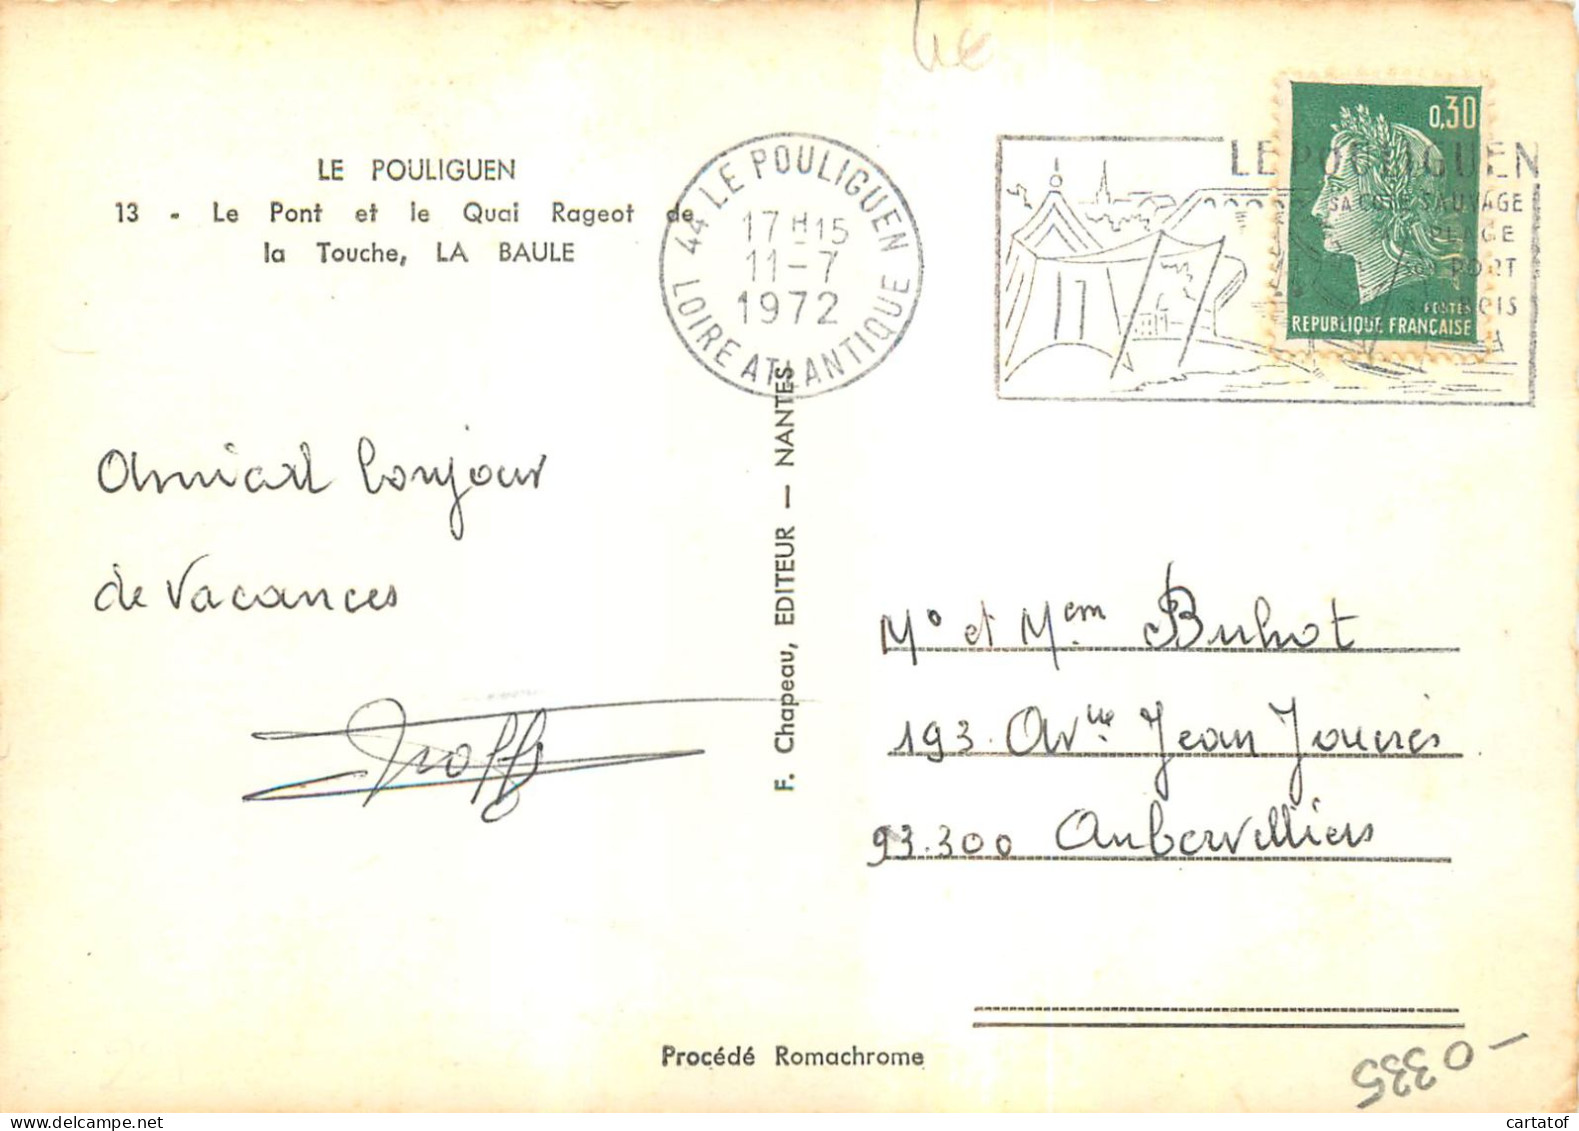 4€
LE POULIGUEN
13 - Le Pont et le Quai Rageot de
la Touche, LA BAULE
44 LE POULIGUEN
17 H 15
11-7
1972
LOIRE ATLANTIQUE
LE POULIGUEN
SA COTE SAUVAGE
PLAGE
SON PORT
BOIS
0,30
POSTES
REPUBLIQUE FRANÇAISE
Amical bonjour
de Vacances
F. Chapeau, EDITEUR — NANTES
Mº et Mem Buhot
193. Avnue Jean Jaurès
93.300 Aubervilliers
Procédé Romachrome
-0335
cartatof